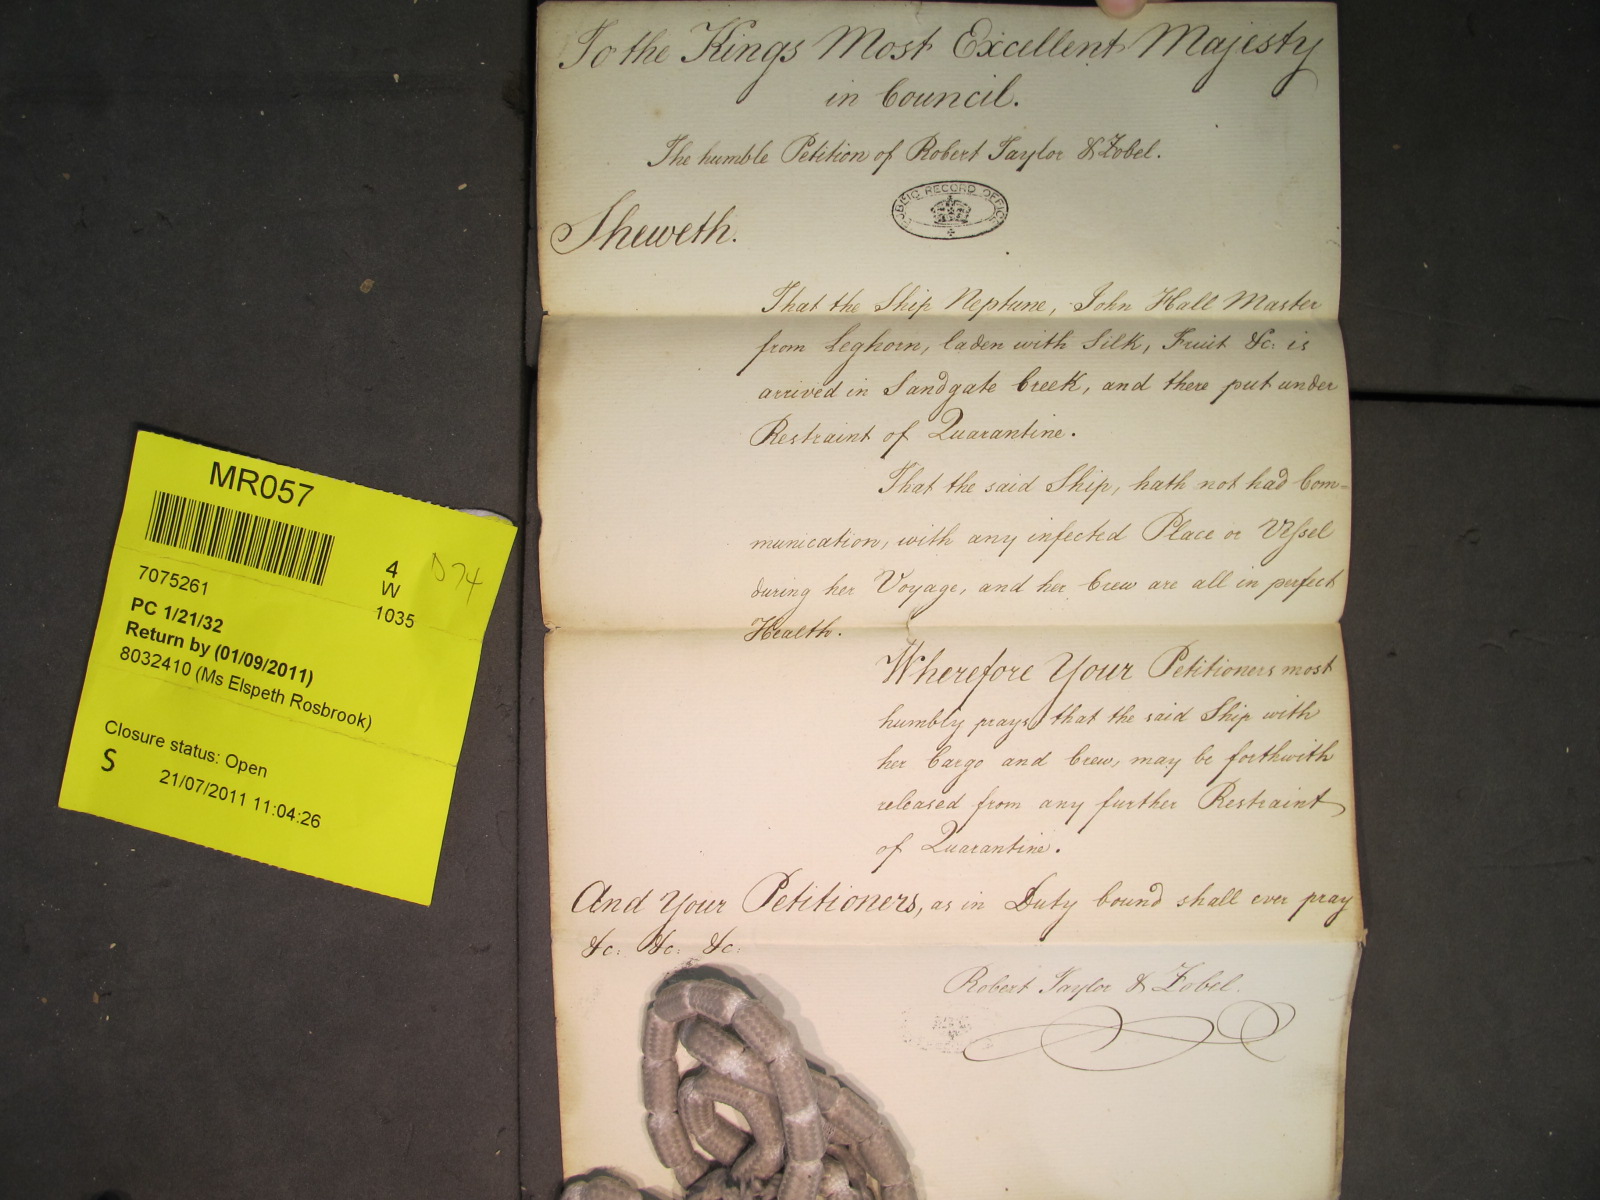 To the Kings Most Excellent Majesty
in Council.
The humble Petition of Robert Taylor & Zobel.
PUBLIC RECORD OFFICE
Sheweth.
That the Ship Neptune, John Hall Master
from Leghorn, laden with Silk, Fruit &c: is
arrived in Sandgate Creek, and there put under
Restraint of Quarantine.
That the said Ship, hath not had Com=
munication, with any infected Place or Vessel
during her Voyage, and her Crew are all in perfect
Health.
Wherefore Your Petitioners most
humbly prays, that the said Ship with
her Cargo and Crew, may be forthwith
released from any further Restraint
of Quarantine.
And Your Petitioners, as in Duty bound shall ever pray
&c: &c: &c:
Robert Taylor & Zobel.
MR057
4
D74
W
7075261
1035
PC 1/21/32
Return by (01/09/2011)
8032410 (Ms Elspeth Rosbrook)
Closure status: Open
S
21/07/2011 11:04:26